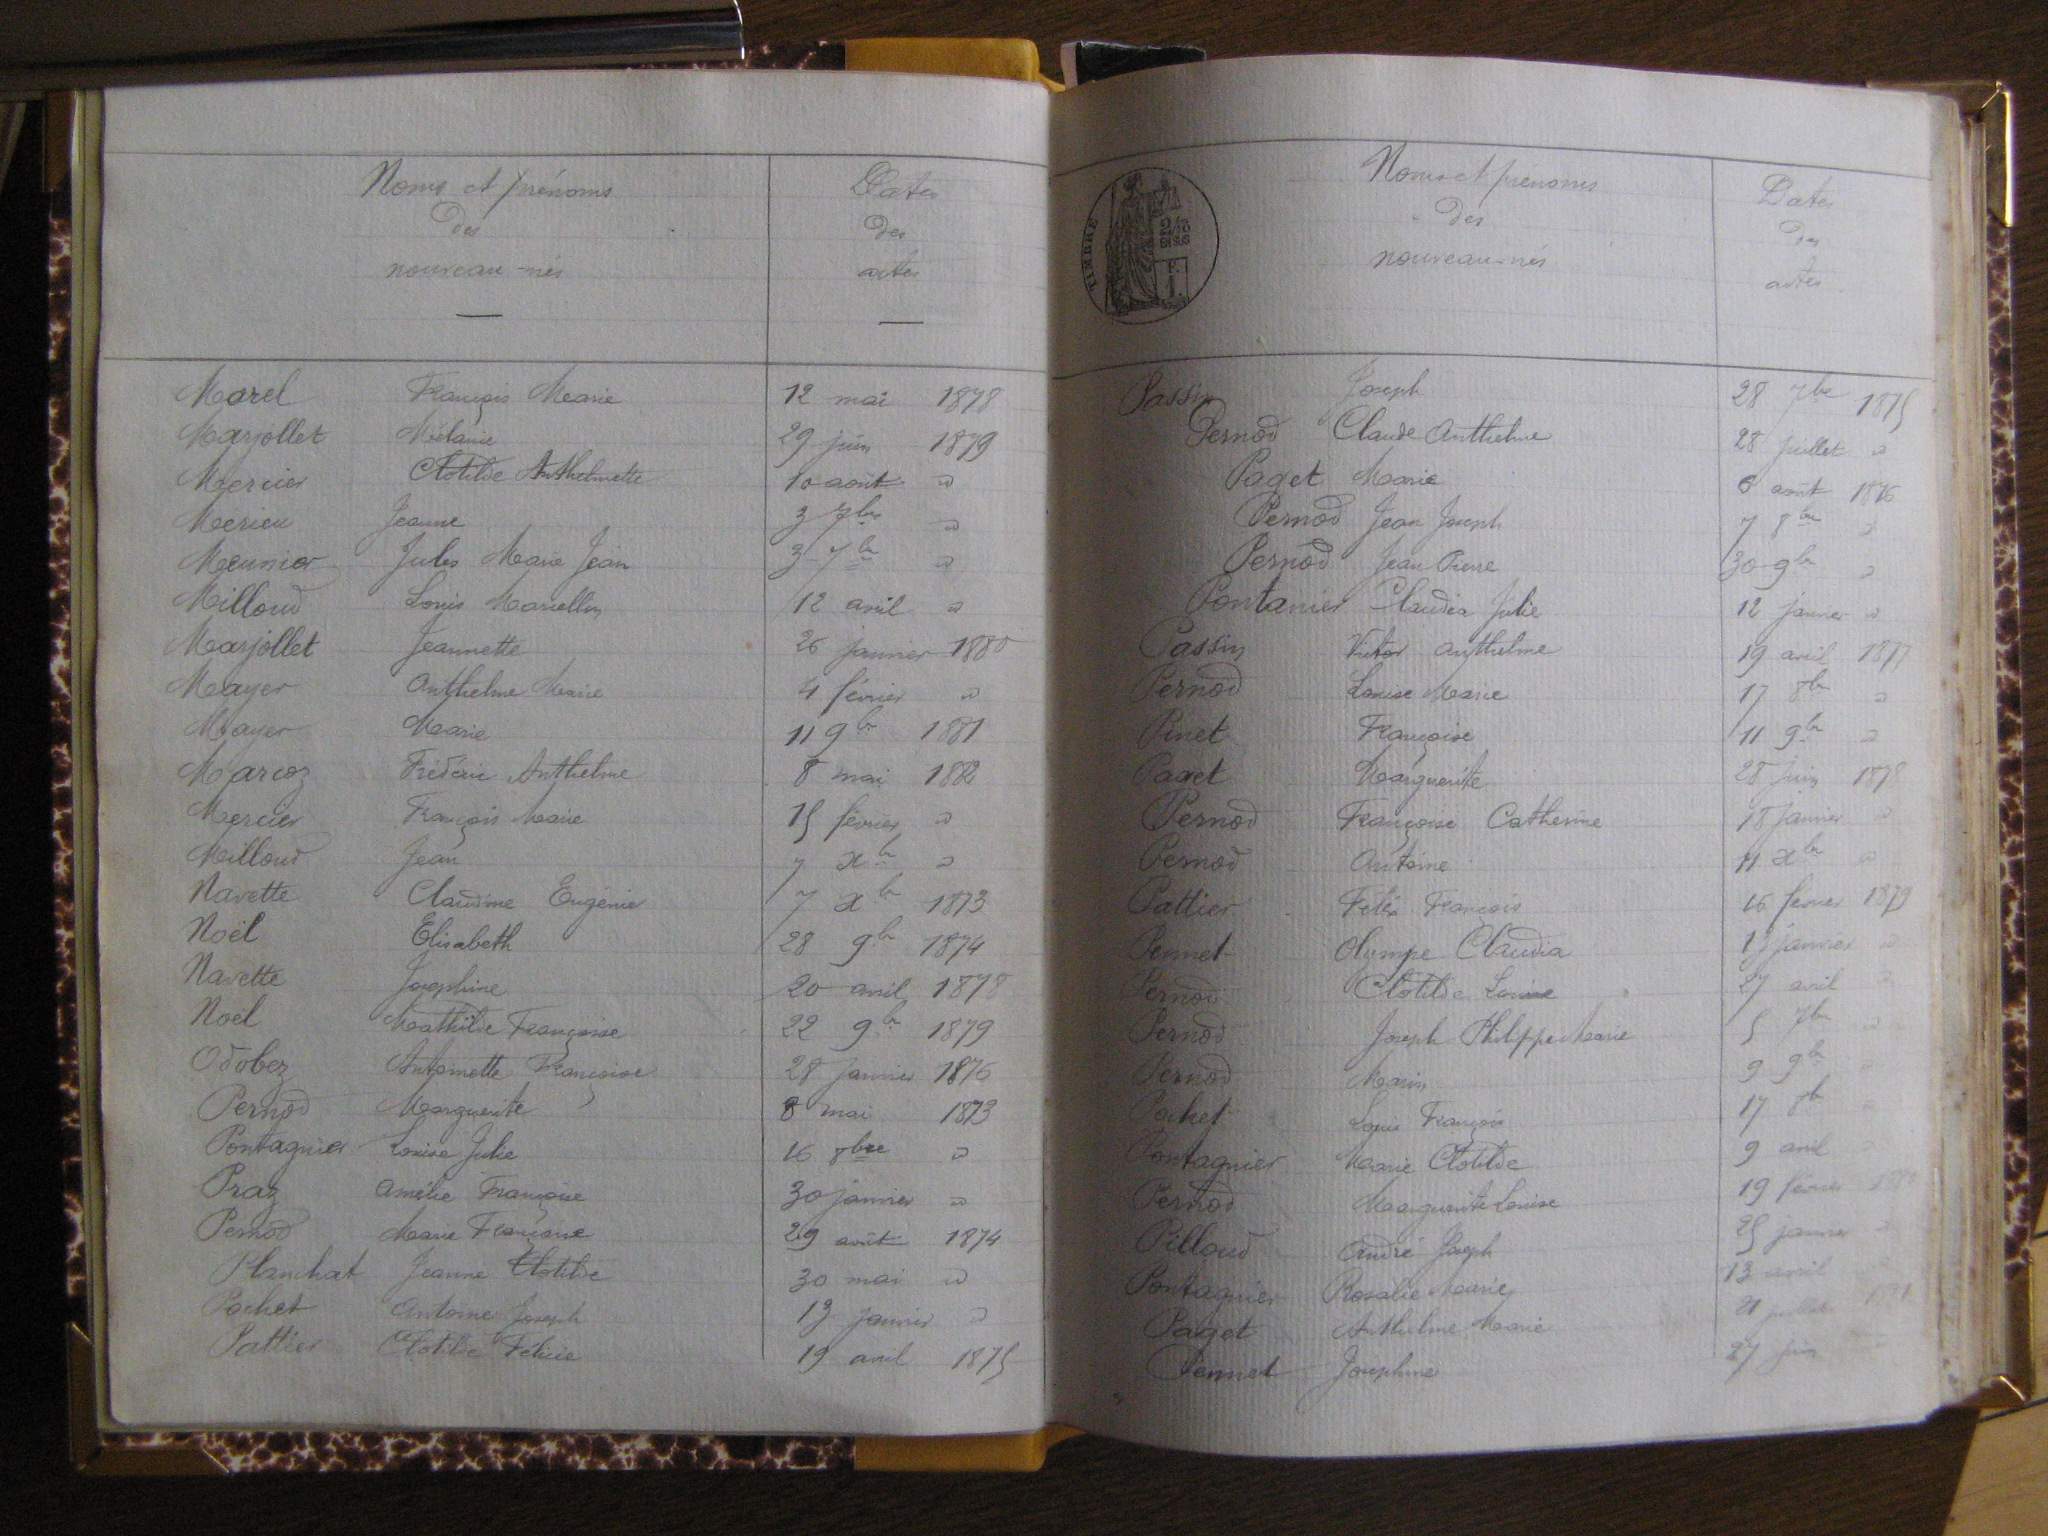 Noms et prénoms
des
nouveau-nés
Dates
des
actes
Morel François Marie 12 mai 1878
Marjollet Mélanie 29 juin 1879
Mercier Clotilde Anthelmette 10 août "
Merieu Jeanne 3 7bre "
Meunier Jules Marie Jean 3 7bre "
Milloud Louis Marcellin 12 avril "
Marjollet Jeannette 26 janvier 1880
Mayer Anthelme Marie 4 février "
Mayer Marie 11 9bre 1881
Marcoz Frédéric Anthelme 8 mai 1882
Mercier François Marie 15 février "
Milloud Jean 7 xbre "
Navette Claudine Eugénie 7 xbre 1873
Noël Elisabeth 28 9bre 1874
Navette Joséphine 20 avril 1878
Noël Mathilde Françoise 22 9bre 1879
Odobez Antoinette Françoise 28 janvier 1876
Pernod Marguerite 8 mai 1873
Pontagnier Louise Julie 16 8bre "
Praz Amélie Françoise 30 janvier "
Pernod Marie Françoise 29 août 1874
Planchat Jeanne Clotilde 30 mai "
Pochet Antoine Joseph 13 janvier "
Pattier Clotilde Félicie 19 avril 1875
TIMBRE
2/10
EN SUS
F.
1.
Noms et prénoms
des
nouveau-nés
Dates
des
actes
Passin Joseph 28 7bre 1875
Pernod Claude Anthelme 28 juillet "
Paget Marie 6 août 1876
Pernod Jean Joseph 7 8bre "
Pernod Jean Pierre 30 9bre "
Pontanier Claudia Julie 12 janvier "
Passin Victor Anthelme 19 avril 1877
Pernod Louise Marie 17 8bre "
Pinet Françoise 11 9bre "
Paget Marguerite 28 juin 1878
Pernod Françoise Catherine 18 janvier "
Pernod Antoine 11 xbre "
Pattier Félix François 16 février 1879
Pennet Olympe Claudia 13 janvier "
Pernod Clotilde Louise 27 avril "
Pernod Joseph Philippe Marie 5 7bre "
Pernod Marin 9 9bre "
Pochet Louis François 17 8bre "
Pontagnier Marie Clotilde 9 avril
Pernod Marguerite Louise 19 février 1880
Pilloud André Joseph 25 janvier
Pontagnier Rosalie Marie 13 avril
Paget Anthelme Marie 21 juillet
Pennet Joséphine 27 juin